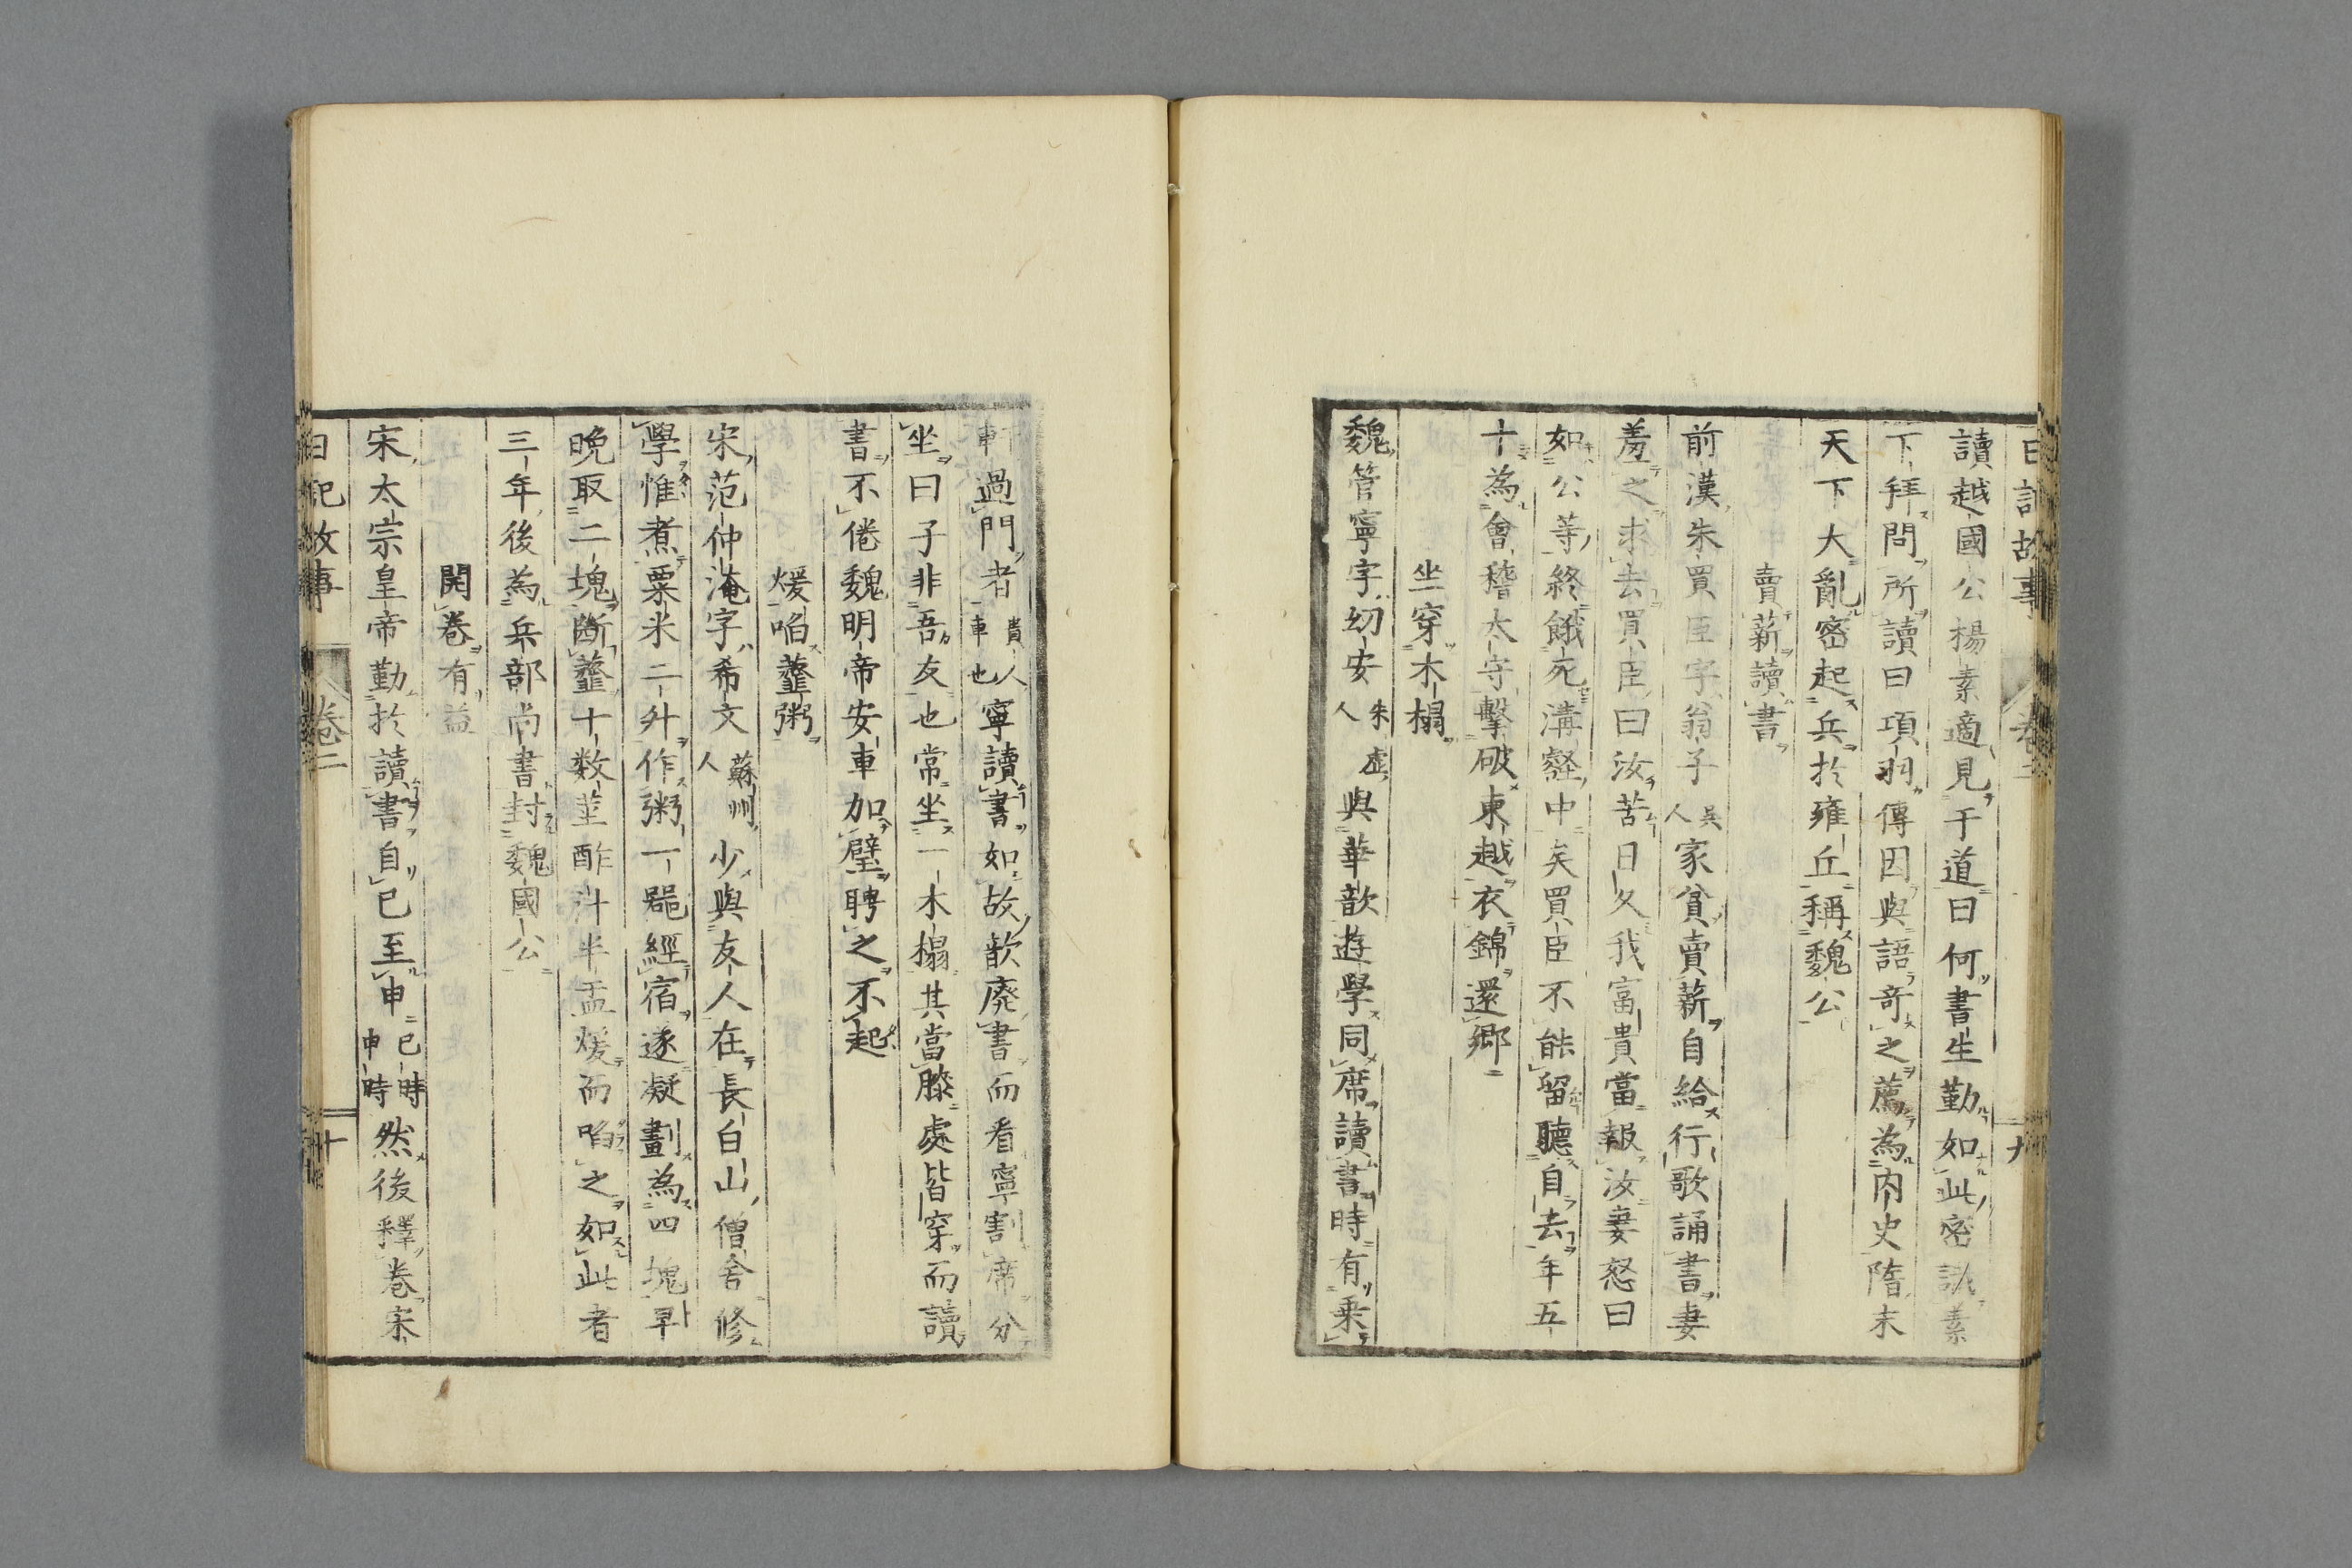 日記故事 卷二 九
讀越國公楊素適見于道曰何書生勤如此密識素
下拜問所讀曰項羽傳因與語奇之薦為内史隋末
天下大亂密起兵於雍丘稱魏公
賣薪讀書
前漢朱買臣字翁子吳人家貧賣薪自給行歌誦書妻
羞之求去買臣曰汝苦日久我富貴當報汝妻怒曰
如公等終餓死溝壑中矣買臣不能留聽自去年五
十為會稽太守擊破東越衣錦還鄉
坐穿木榻
魏管寧字幼安朱虛人與華歆遊學同席讀書時有乘
軒過門者貴人車也寧讀書如故歆廢書而看寧割席分
坐曰子非吾友也常坐一木榻其當膝處皆穿而讀
書不倦魏明帝安車加璧聘之不起
煖啗虀粥
宋范仲淹字希文蘇州人少與友人在長白山僧舍修
學惟煮粟米二升作粥一器經宿遂凝劃為四塊早
晚取二塊斷虀十数莖酢汁半盂煖而啗之如此者
三年後為兵部尚書封魏國公
開卷有益
宋太宗皇帝勤於讀書自巳至申巳時申時然後釋卷宋
日記故事 卷二 十